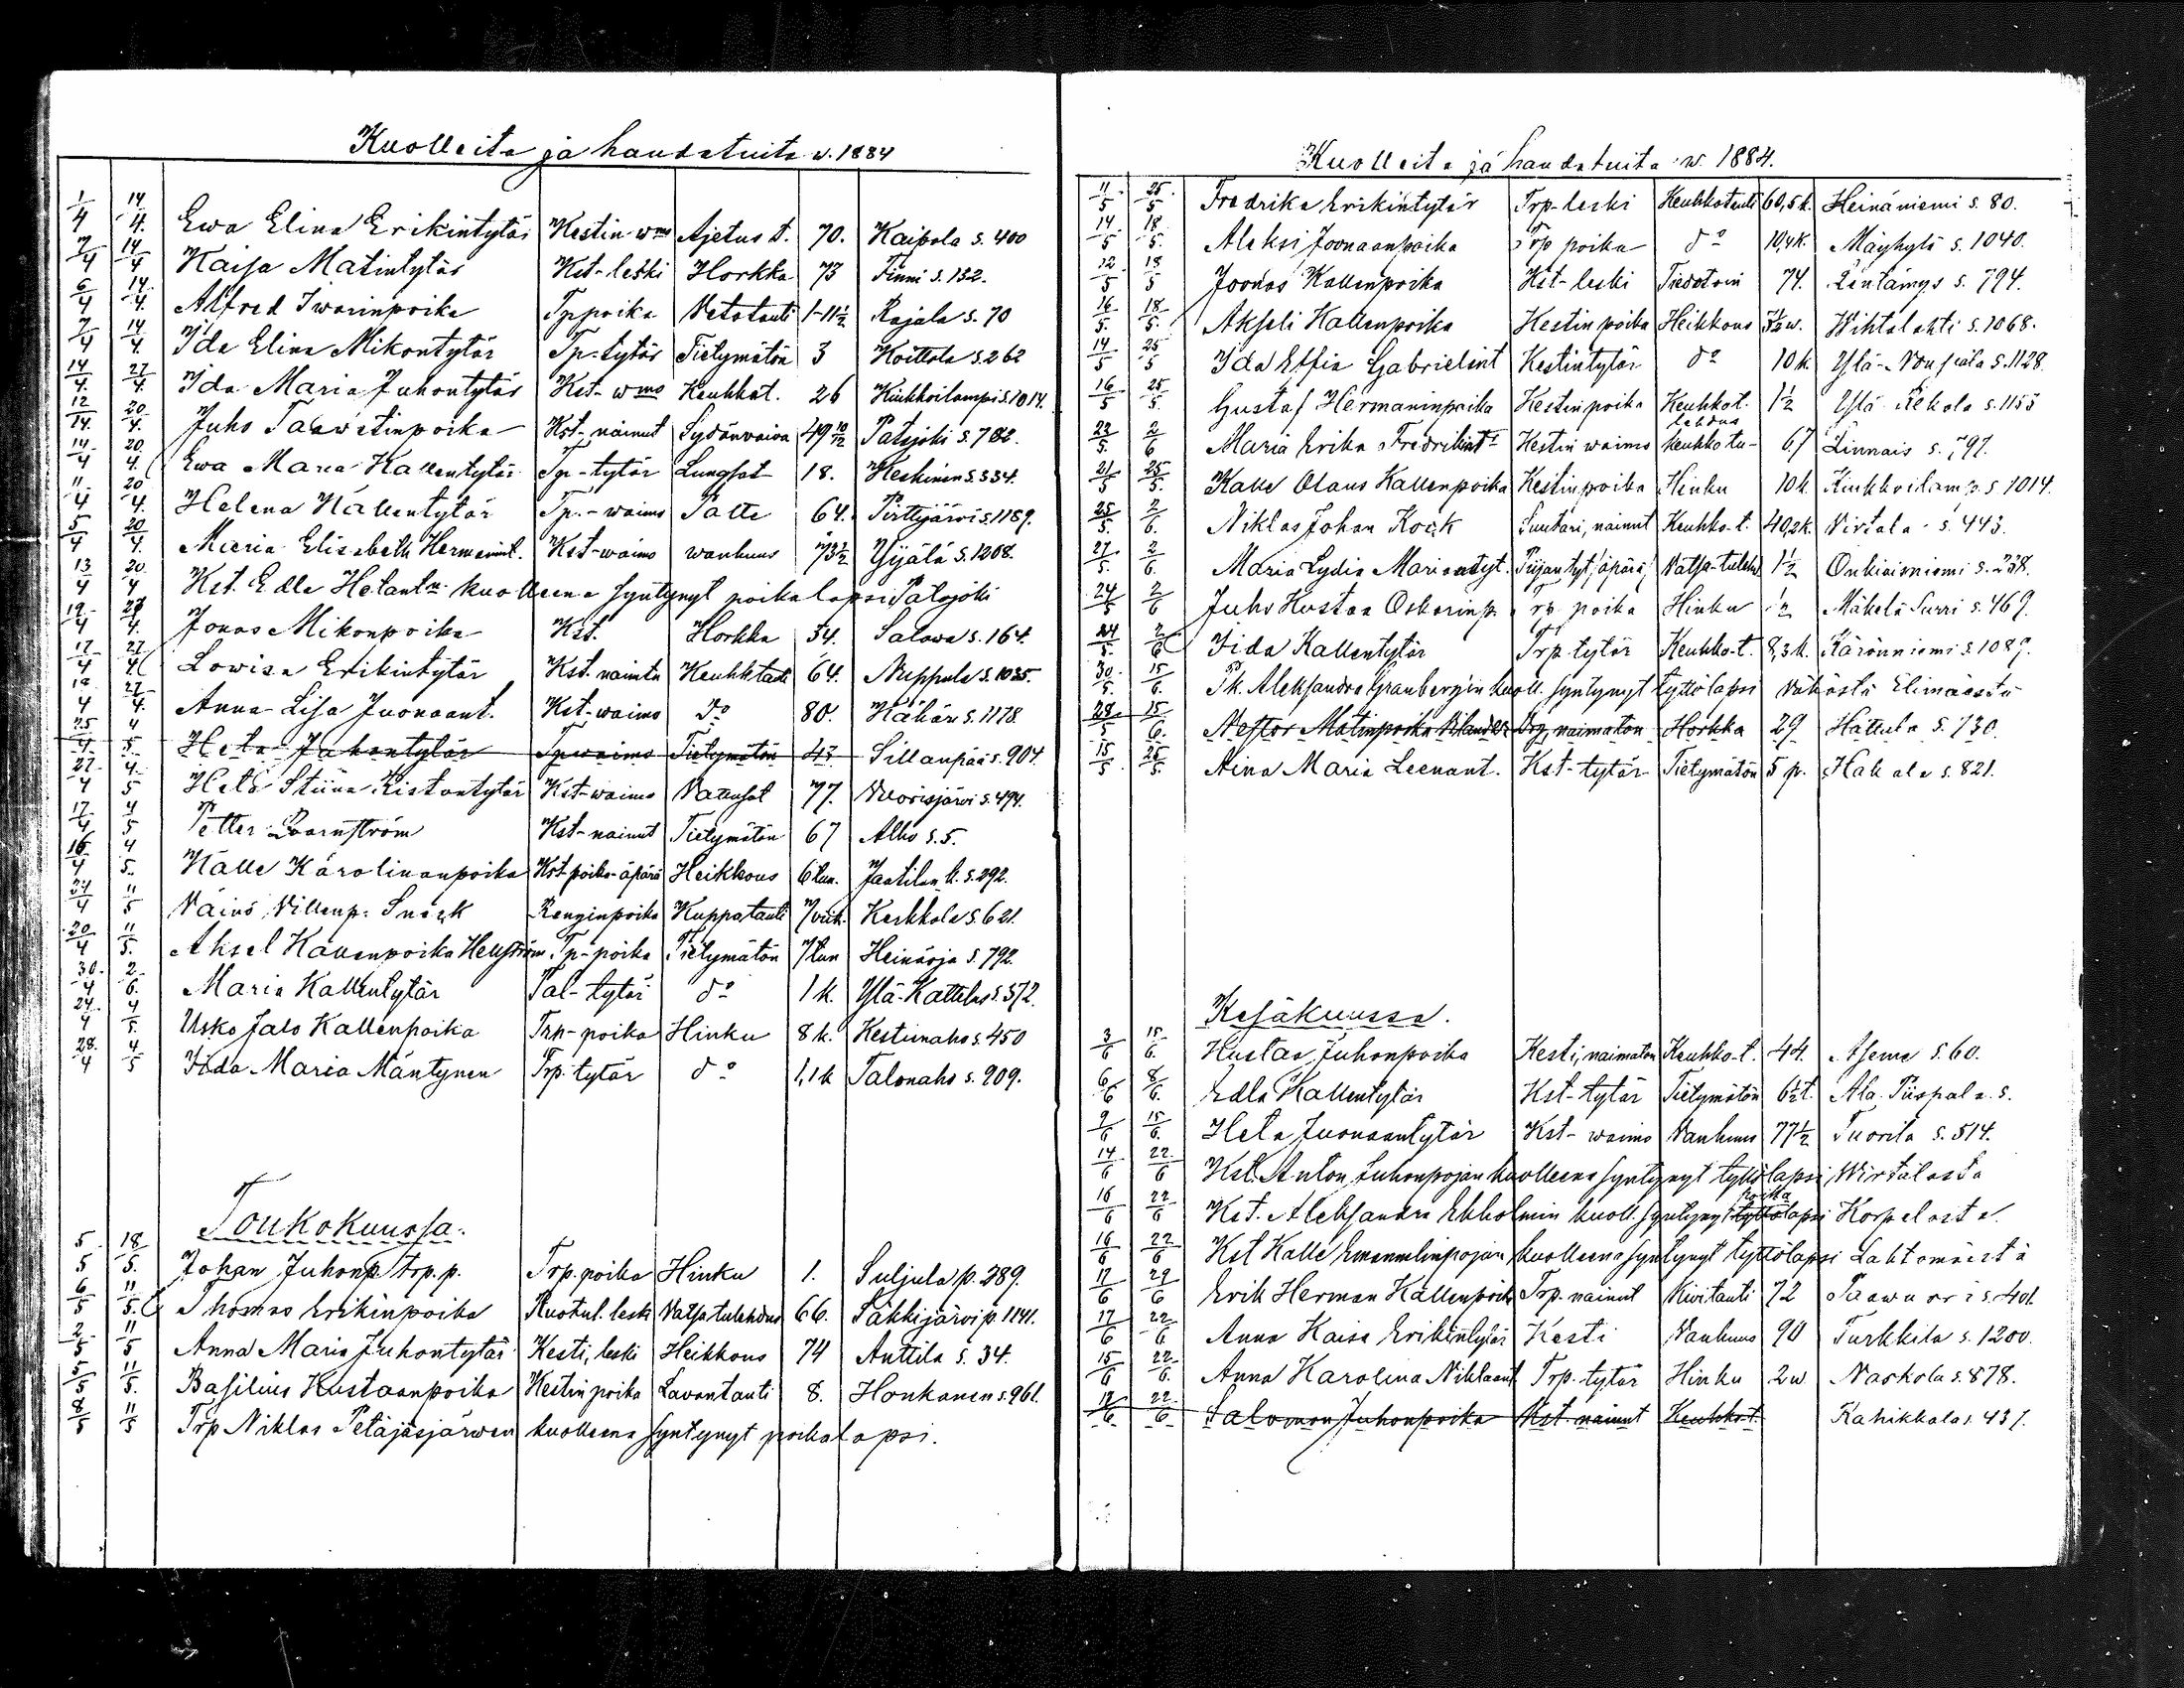 Kuolleita ja haudatuita v. 1884
1/4 14/4. Ewa Elina Erikintytär Kestin wmo Ajetus t. 70. Kaipola s. 400
7/4 14/4 Kaisa Matintytär Kst-leski Horkka 73 Finni s. 132.
6/4 14/4. Alfred Iwarinpoika Tp poika Vetotauti 1-11½ Rajala s. 70
7/4 14/4. Ida Elina Mikontytär Tp-tytär Tietymätön 3 Koittola s. 262
14/4. 27/4. Ida Maria Juhontytär Kst-wmo Keuhkot. 26 Kiukkoilampi s. 1014.
12/4. 20/4. Juho Taawetinpoika Kst-nainut Sydänvaiva 49 10/12 Patojoki s. 782.
14/4 20/4. Ewa Maria Kallentytär Tp-tytär Lungsot 18. Heskinen s. 534.
11/4 20/4. Helena Kallentytär Tp.-waimo Patte 64. Pirttijärvi s. 1189.
5/4 20/4. Maria Elisabeth Hermannint. Kst-waimo wanhuus 73½ Yijälä s. 1208.
13/4 20/4 Kst. Edla Hetant:n kuolleena syntynyt poikalapsi Patojoki
19/4 27/4. Jonas Mikonpoika Kst. Horkka 54. Salowa s. 164.
17/4 27/4. Lowisa Erikintytär Kst. nainta Keuhktauti 64. Nuppula s. 1035.
19/4 27/4. Anna Lisa Juonaant. Kst-waimo do 80. Kähäri s. 1178.
25/4 4/5. Heta Juhontytär Tpwaimo Tietymätön 43 Sillanpää s. 904.
27/4 4/5 Heta Stiina Kistontytär Kst-waimo Vattusot 77. Vuorisjärvi s. 494.
17/4 4/5 Petter Boarnström Kst-nainut Tietymätön 67 Alho s. 5.
16/4 4/5. Kalle Karolinanpoika Kst poika-äpärä Heikkous 6 tun. Jaatilan k. s. 292.
27/4 11/5 Väinö Villenp. Snäck Renginpoika Kuppatauti 7 viik. Kerkkola s. 621.
20/4 11/5. Aksel Kallenpoika Hellström Tp-poika Tietymätön 7 tun Heinäoja s. 792.
30/4 2/6. Maria Kallentytär Tal-tytär do 1 k. Ylä-Kattelus s. 572.
24/4 4/5. Usko Jalo Kallenpoika Trp-poika Hinku 8 k. Kestinaho s. 450
28/4 4/5 Iida Maria Mäntynen Trp. tytär do 1,1 k Talonaho s. 909.
Toukokuussa.
5/5 18/5. Johan Juhonp. trp. p. Trp. poika Hinku 1. Suljula p. 289.
6/5 11/5. Thomas Erikinpoika Ruotul. leski Vatsatulehdus 66. Säkkijärvi p. 1141.
2/5 11/5 Anna Maria Juhontytär Kesti, leski Heikkous 74 Anttila s. 34.
5/5 11/5. Basilius Kustaanpoika Kestin poika Lavantauti 8. Honkanen s. 961.
8/5 11/5 Trp Niklas Petäjäsjärwen kuolleena syntynyt poikalapsi.
Kuolleita ja haudatuita w. 1884.
11/5 25/5 Fredrika Erikintytär Trp-leski Keuhkotauti 60,5 k. Heinäniemi s. 80.
14/5 18/5. Aleksi Joonaanpoika Trp poika do 10,4 k. Mäyhylä s. 1040.
12/5 18/5 Joonas Kallenpoika Kst-leski Tiedotoin 74. Lentämys s. 794.
16/5. 18/5. Akseli Kallenpoika Kestin poika Heikkous 3½ w. Wihtalahti s. 1068.
14/5 25/5 Ida Effia Gabrielint Kestintytär do 10 k. Ylä-Vousiala s. 1128.
16/5 25/5. Gustaf Hermaninpoika Kestinpoika Keuhkot. 1½ Ylä Rekola s. 1155
22/5. 2/6 Maria Erika Fredrikint. Kestin waimo keuhko tulehdus 67 Linnais s. 797.
21/5 25/5. Kalle Olaus Kallenpoika Kestinpoika Hinku 10 k. Kiukkoilamp. s 1014.
25/5. 2/6. Niklas Johan Kock Suutari, nainut Keuhko-t. 40,2 k. Virtala s. 443.
27/5. 2/6. Maria Lydia Mariantyt. Piijan tyt, äpärä, Vatsa-tulehd 1½ Onkiniemi s. 238.
24/5 2/6 Juho Kustaa Oskarinp. Trp poika Hinku ½ Mäkelä Surri s. 469.
24/5. 2/6 Iida Kallentytär Trp. tytär Keuhko-t. 8,3 k. Kärönniemi s. 1089.
30/5. 15/6. Pk. Aleksandra Granbergin kuoll. syntynyt tyttölapsi Vähästä Elimäestä
28/5 15/6. Nestor Matinpoika Blander Drg, naimaton Horkka 29 Hattula s. 130.
15/5 25/5. Aina Maria Leenant. Kst-tytär Tietymätön 5 p. Hakala s. 821.
Kesäkuussa.
3/6 15/6. Kustaa Juhonpoika Kesti, naimaton Keuhko-t. 44. Asema s. 60.
6/6 8/6. Edla Kallentytär Kst-tytär Tietymätön 6½ t. Ala. Piispala. s.
9/6 15/6. Heta Juonaantytär Kst-waimo Vanhuus 77½ Tuorila s. 514.
14/6 22/6 Kst. Anton Juhonpojan kuolleena syntynyt tyttölapsi Wirtalasta
16/6 22/6 Kst. Aleksandra Ekholmin kuoll. syntynyt tyttö poika lapsi Korpelasta.
16/6 22/6 Kst Kalle Emanuelinpojan kuolleena syntynyt tyttölapsi Lahtomäestä
17/6 29/6 Erik Herman Kallenpoika Trp. nainut Kivitauti 72 Paawuori s. 401.
17/6 22/6 Anna Kaisa Erikintytär Kesti Vanhuus 90 Turkkila s. 1200.
15/6 22/6. Anna Karolina Niklaant Trp. tytär Hinku 2 w Naskola s. 878.
12/6. 22/6 Salomon Juhonpoika Kst. nainut Keuhko-t. Kahikkala s. 437.